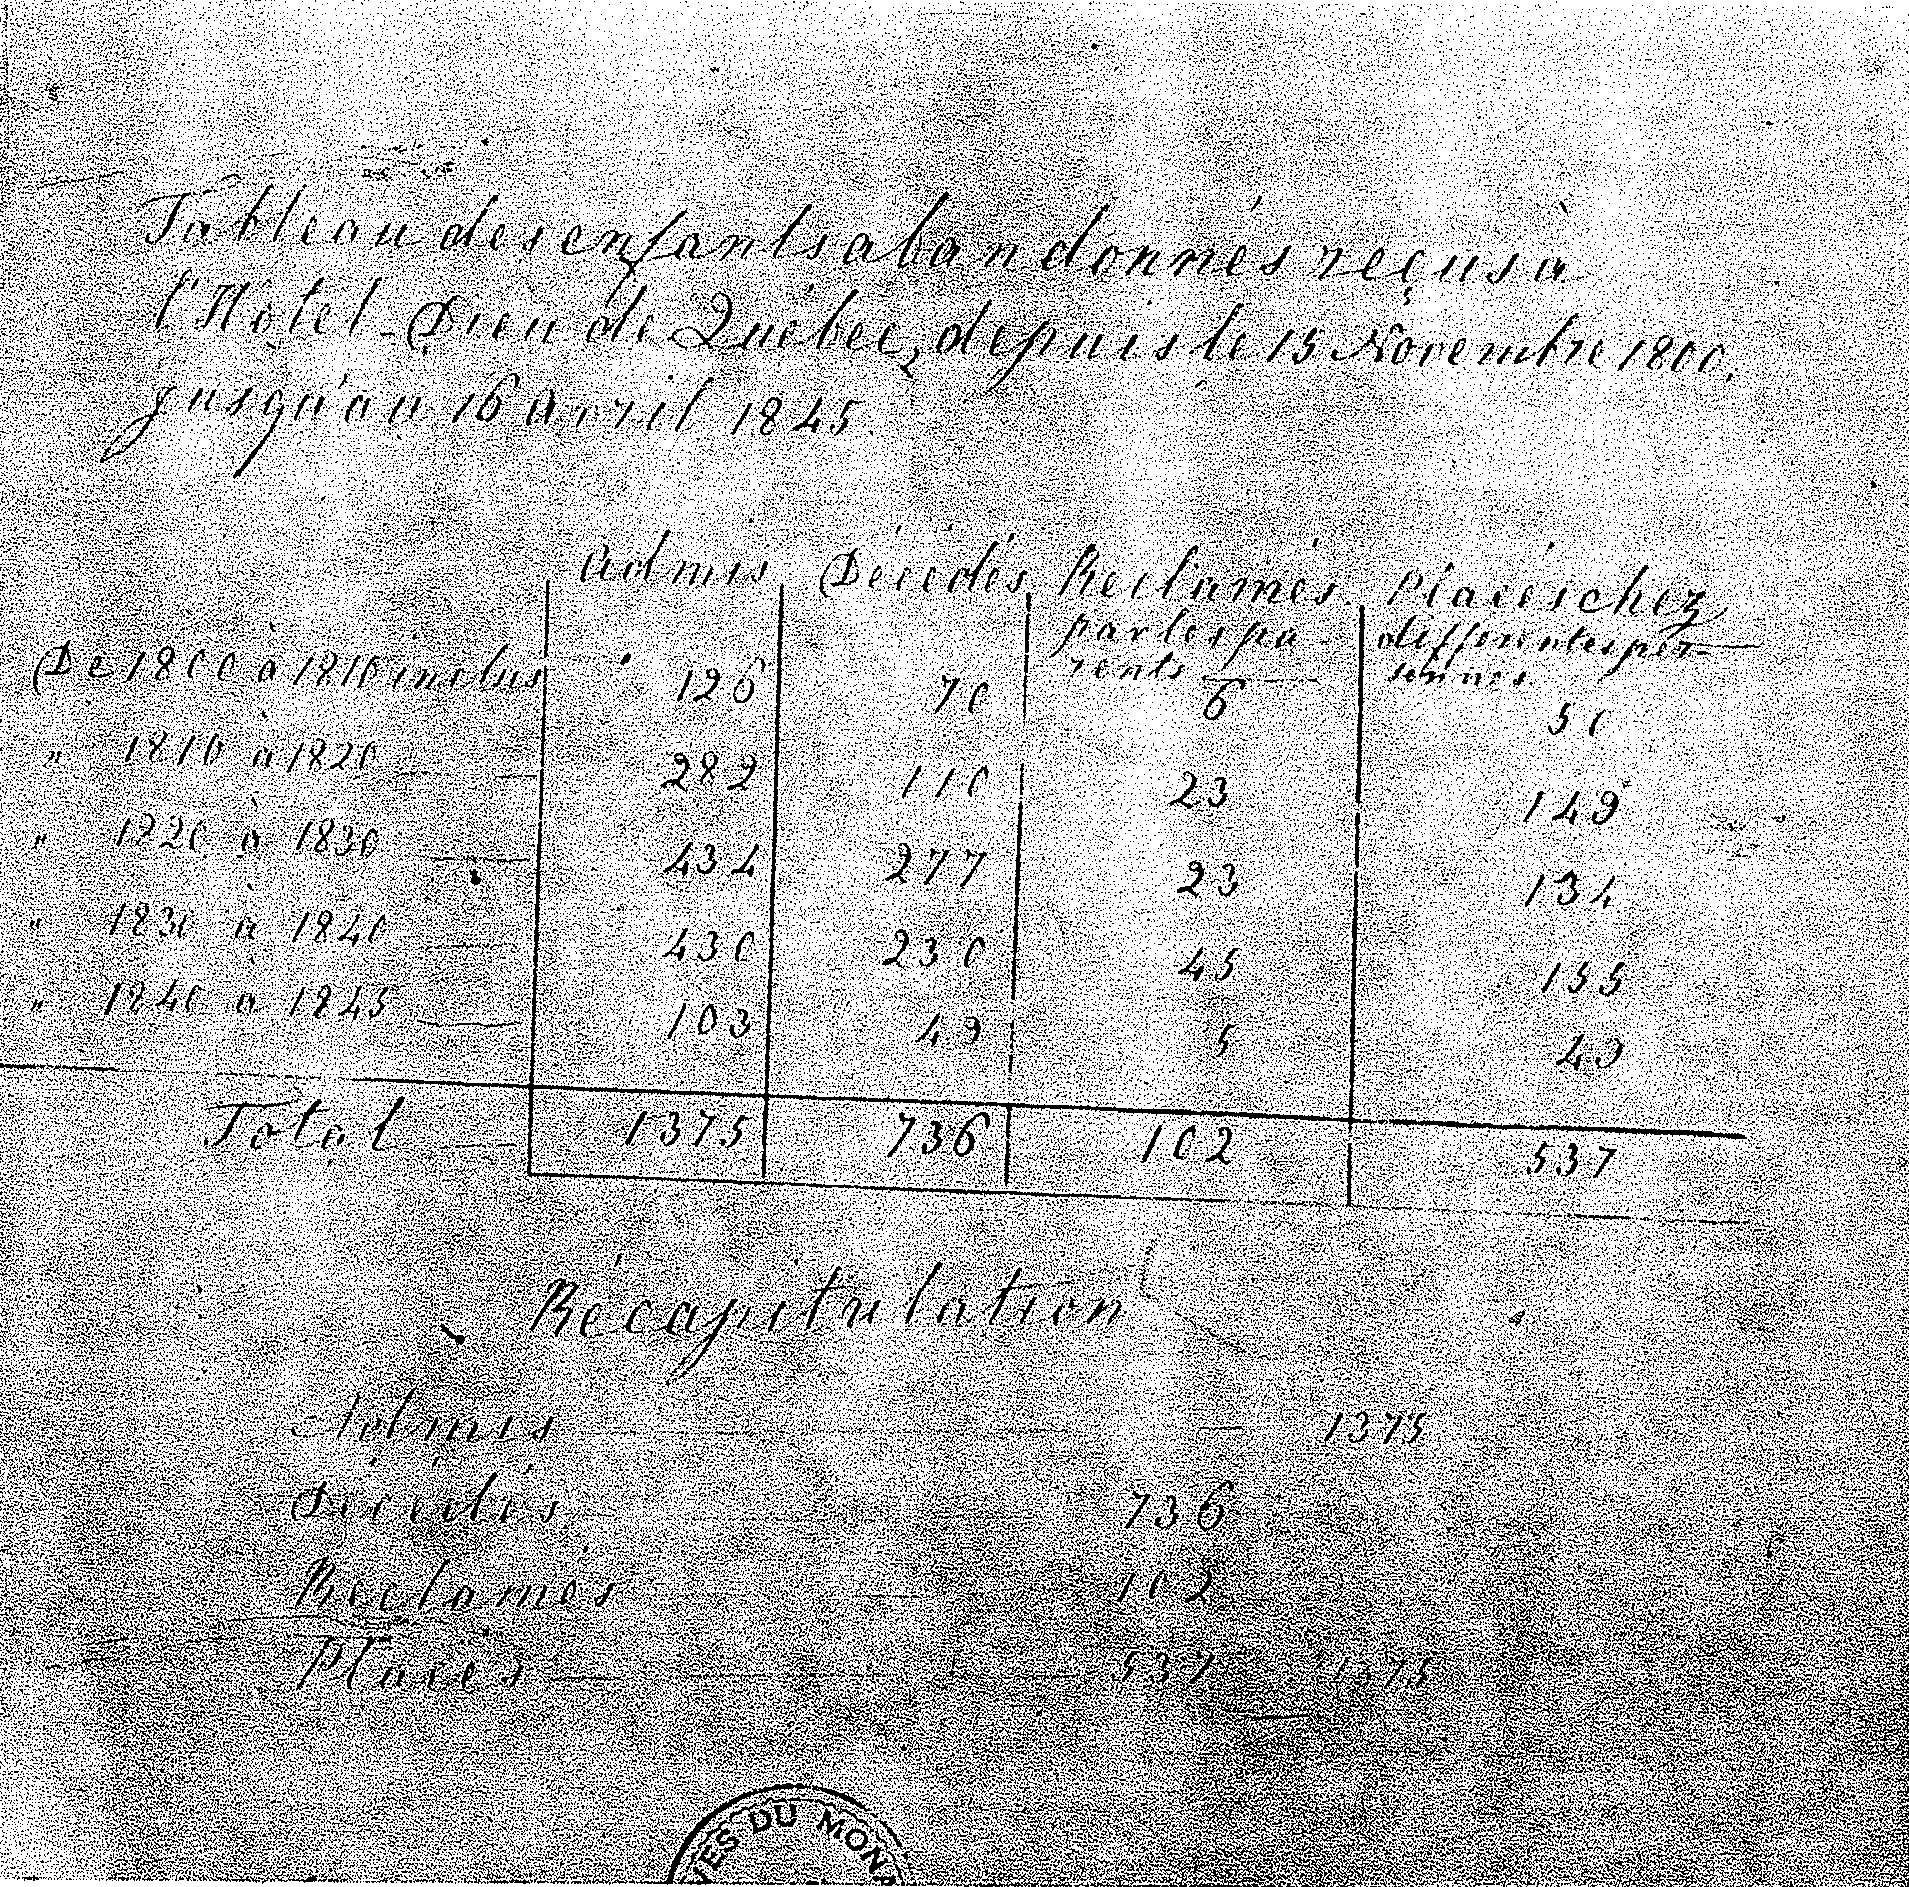 Tableau des enfants abandonnés reçus à
l'Hôtel-Dieu de Québec, depuis le 15 Novembre 1800,
jusqu'au 16 Avril 1845.
Admis Décédés Réclamés Placés chez
par les pa differentes per-
rents sonnes.
De 1800 à 1810 inclus 126 70 6 50
" 1810 à 1820 282 110 23 149
" 1820 à 1830 434 277 23 134
" 1830 à 1840 430 230 45 155
" 1840 à 1845 103 49 5 49
Total 1375 736 102 537
Récapitulation
Admis 1375
Décédés 736
Réclamés 102
Placés 537 1375
DU MON